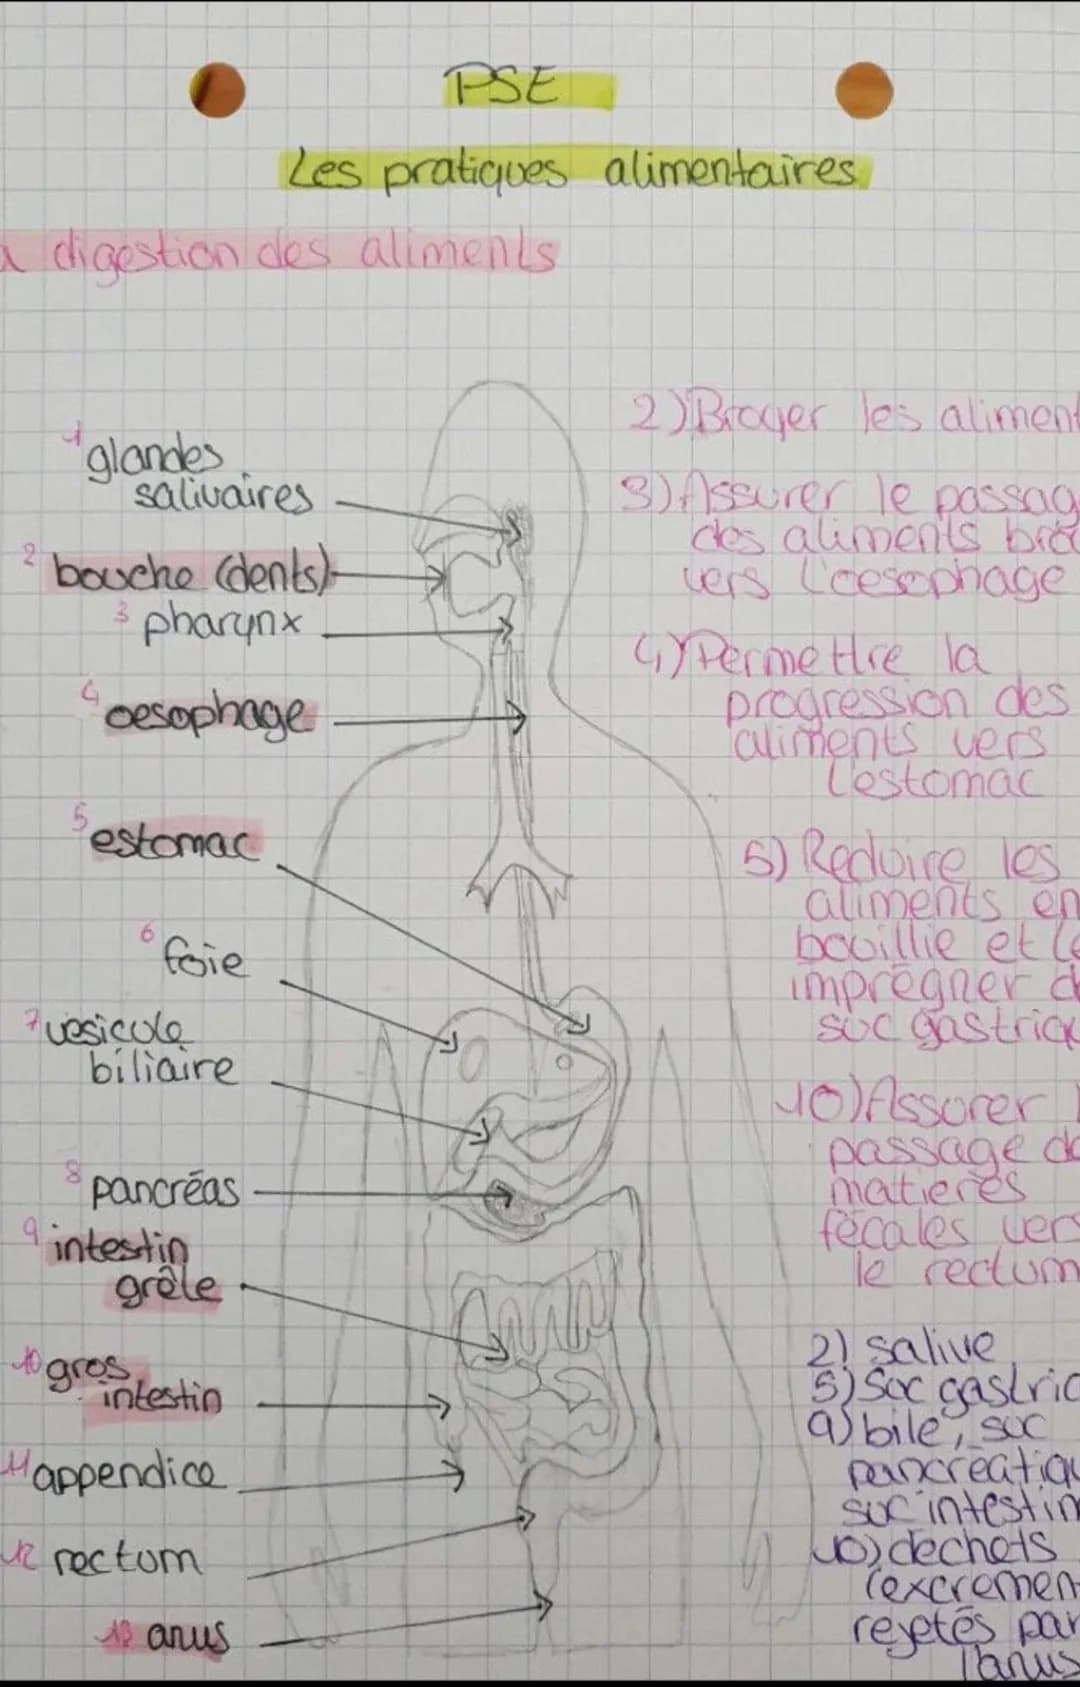 PSE
Les pratiques alimentaires
a digestion des aliments
1 glandes
salivaires
2 bouche (dents)
3 pharynx
4 oesophage
5 estomac
6 foie
7 vesicule
biliaire
8 pancréas
9 intestin
grêle
10 gros
intestin
11 appendice
12 rectum
13 anus
2) Broyer les aliment
3) Assurer le passag
des aliments bro
vers l'oesophage
4) Permettre la
progression des
aliments vers
l'estomac
5) Reduire les
aliments en
bouillie et le
imprégner d
suc gastriq
10) Assurer l
passage d
matieres
fécales vers
le rectum
2) salive
5) Suc gastric
9) bile, suc
pancréatiqu
suc intestin
10) dechets
(excremen
rejetés par
l'anus